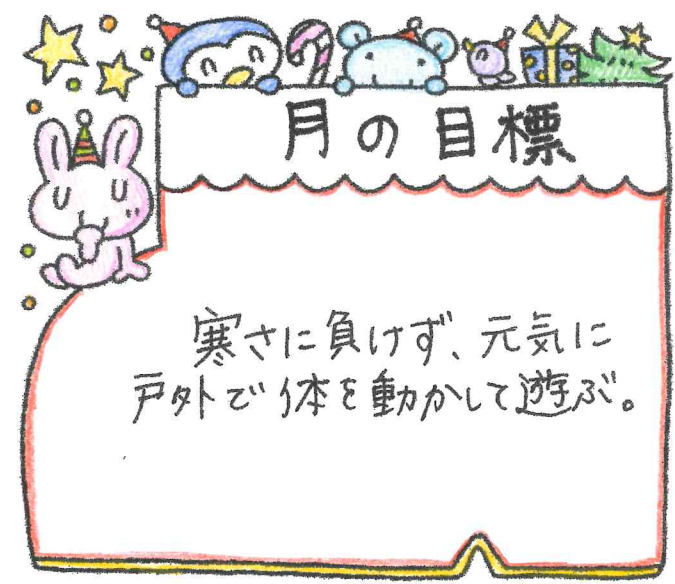 月の目標
寒さに負けず、元気に
戸外で体を動かして遊ぶ。